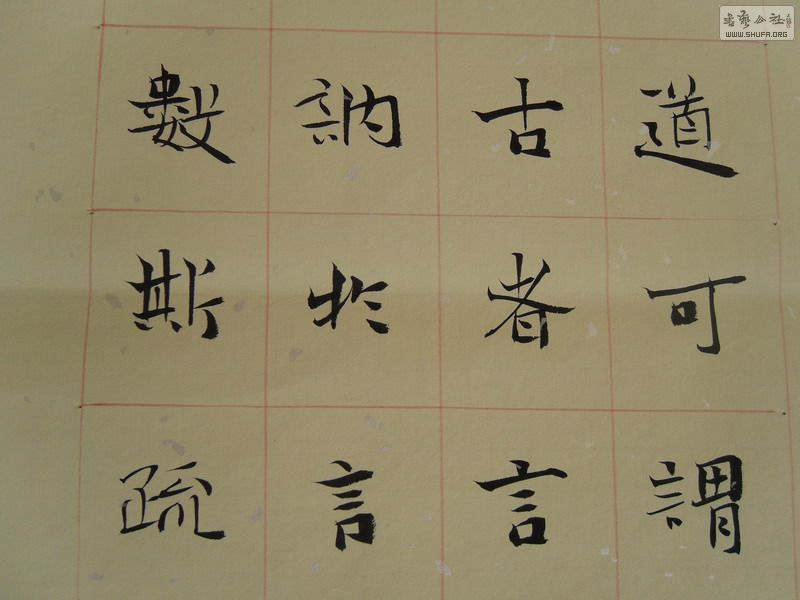 道可謂
古者言
訥於言
數斯疏
書藝公社
WWW.SHUFA.ORG